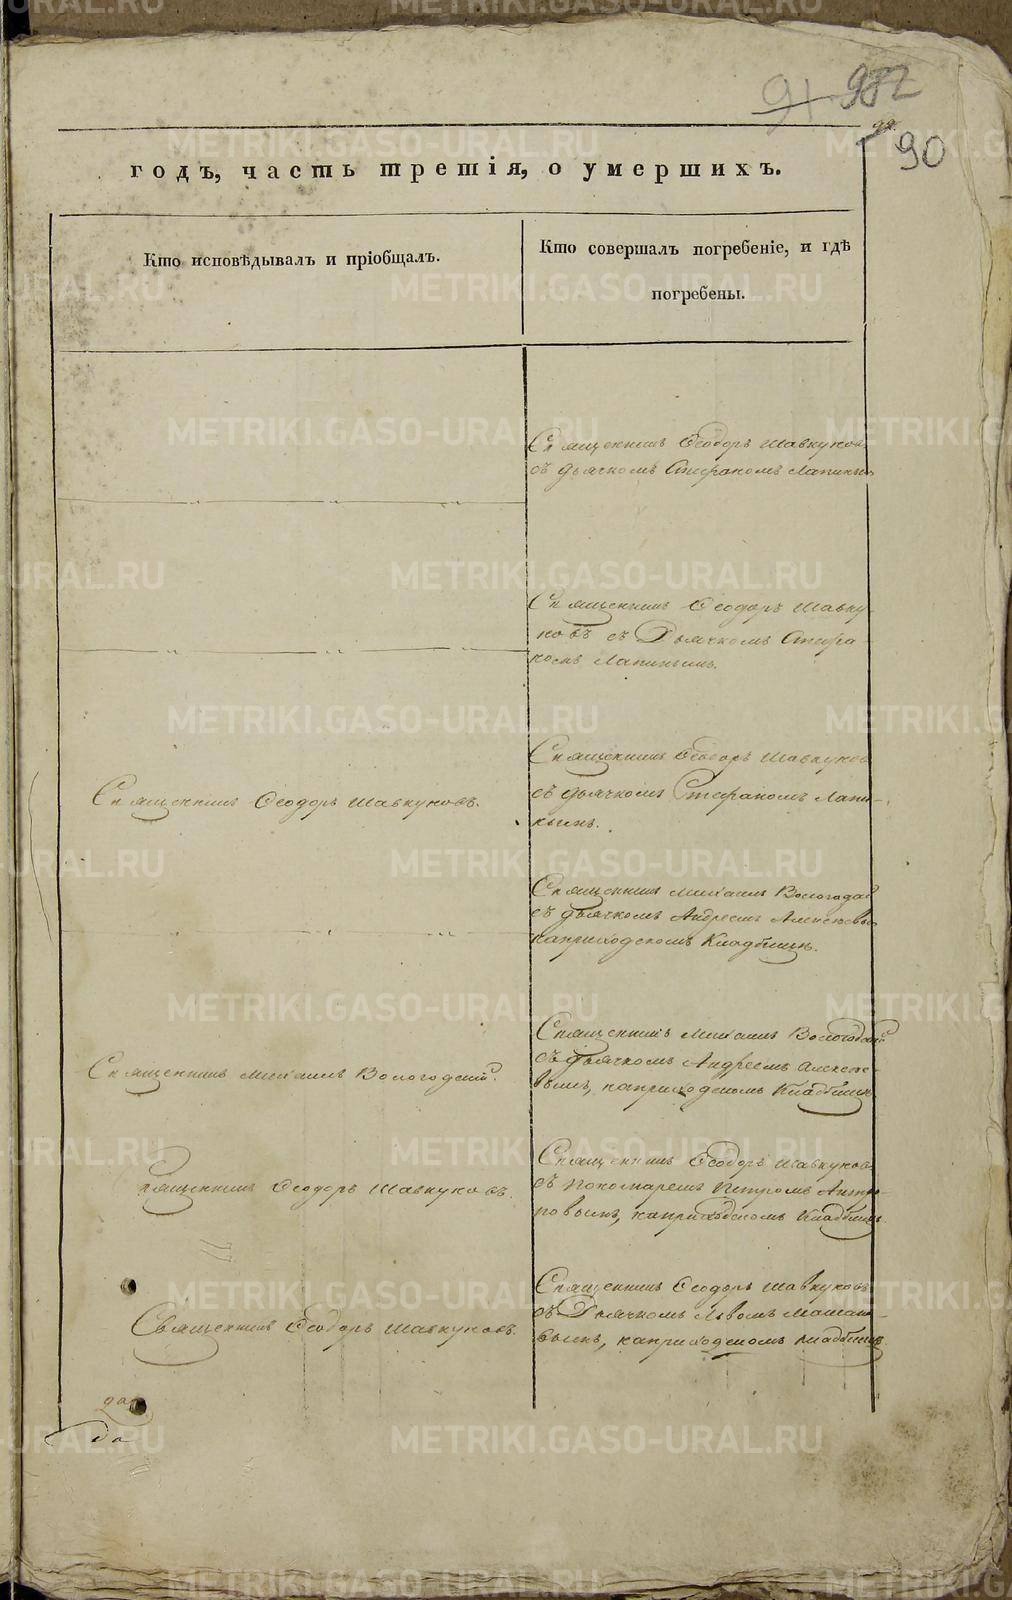 91 982
90
годъ, часть третія, о умершихъ.
Кто исповѣдывалъ и пріобщалъ.
Кто совершалъ погребеніе, и гдѣ
погребены.
Священникъ Ѳеодоръ Шавкуновъ
съ дьячкомъ Стефаномъ Лапинымъ
Священникъ Ѳеодоръ Шавку
новъ съ Дьячкомъ Стефа
номъ Лапинымъ.
Священникъ Ѳеодоръ Шавкуновъ.
Священникъ Ѳеодоръ Шавкуновъ
съ дьячкомъ Стефаномъ Лапи-
нымъ.
Священникъ Михаилъ Вологодскій
съ дьячкомъ Андреемъ Алексѣевымъ
наприходскомъ Кладбищѣ.
Священникъ Михаилъ Вологодскій.
Священникъ Михаилъ Вологодскій
съ дьячкомъ Андреемъ Алексѣе-
вымъ, наприходскомъ Кладбищѣ
Священникъ Ѳеодоръ Шавкуновъ.
Священникъ Ѳеодоръ Шавкуновъ
съ пономаремъ Петромъ
наприходскомъ Кладбищѣ
Священникъ Ѳеодоръ Шавкуновъ.
Священникъ Ѳеодоръ Шавкуновъ
съ Дьячкомъ Львомъ
наприходскомъ кладбищѣ.
METRIKI.GASO-URAL.RU